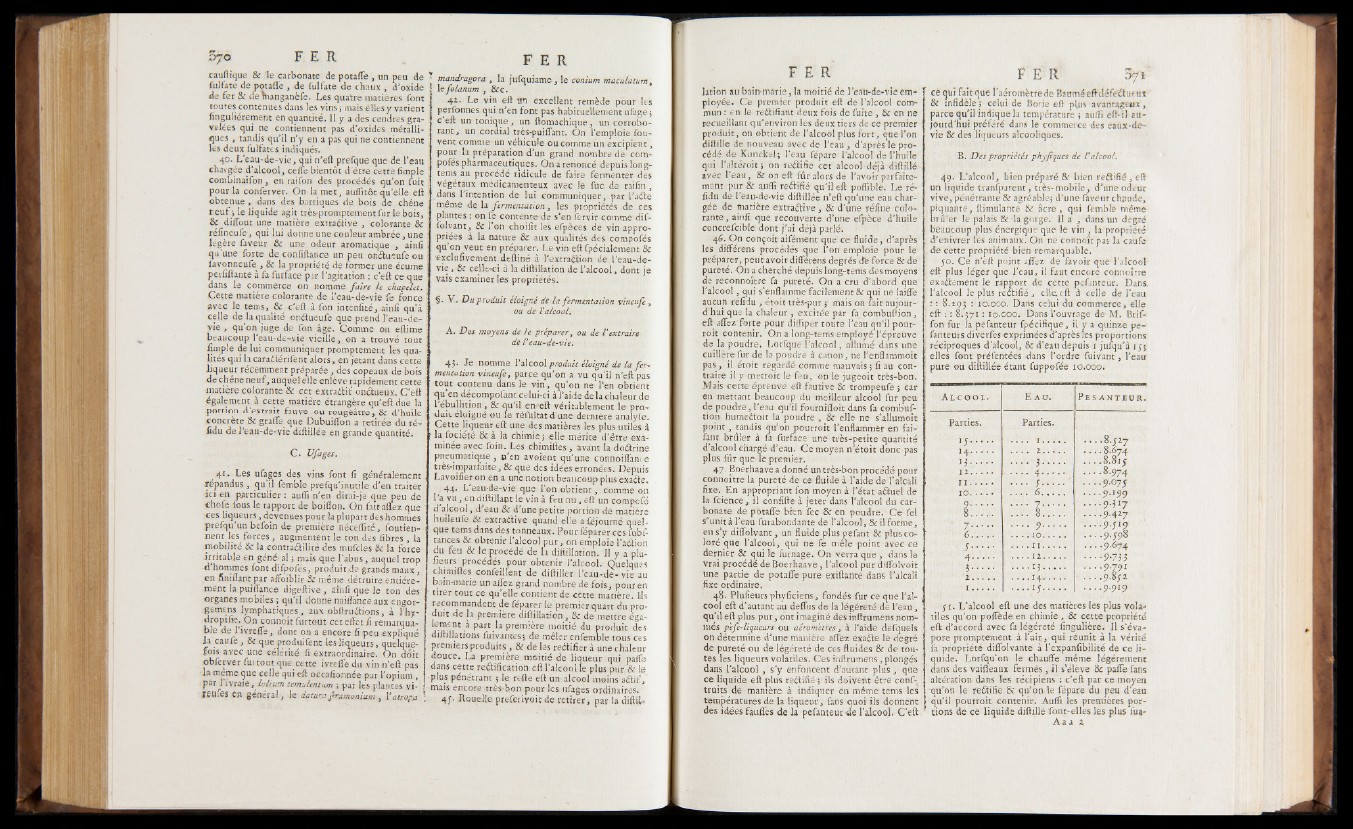 370 F E R
F E R
caustique & le carbonate de potasse, un peu de
sulfate de potasse, de sulfate de chaux, d'oxide
de fer & de manganèse. Les quatre matières sont
toutes contenues dans les vins; mais elles y varient
singuliérement en quantité. Il y a des cendres gra-
velées qui ne contiennent pas d'oxides métalli-
ques, tandis qu'il n'y en a pas qui ne contiennent
les deux sulfates indiqués.
40. L'eau-de-vie, qui n'est presque que de l'eau
chargée d'alcool, cesse bientôt d'être cette simple
combinaison, en raison des procédés qu'on suit
pour la conserver. On la met, aussitôt qu'elle est
obtenue, dans des barriques de bois de chêne
neuf; le liquide agit très-promptement sur le bois,
& dissout une matière extractive, colorante &
résineuse, qui lui donne une couleur ambrée, une
légère saveur & une odeur aromatique, ainsi
qu'une sorte de consistance un peu onctueuse ou
savonneuse, & la propriété de former une écume
persistante à sa surface par l'agitation: c'est ce que
dans le commerce on nomme faire le chapelet.
Cette matière colorante de l'eau-de-vie se fonce
avec le tems, & c'est à son intensité, ainsi qu'à
celle de la qualité onctueuse que prend l'eau-de-
vie, qu'on juge de son âge. Comme on estime
beaucoup l'eau-de-vie vieille, on a trouvé tout
simple de lui communiquer promptement les qua-
lités qui la caractérisent alors, en jetant dans cette
liqueur récemment préparée, des copeaux de bois
de chêne neuf, auquel elle enlève rapidement cette
matière colorante & cet extractif onctueux. C'est
également à cette matière étrangère qu'est due la
portion d'extrait fauve ou rougeâtre, & d'huile
concrète & grasse que Dubuisson a retirée du ré-
sidu de l'eau-de-vie distillée en grande quantité.
C. Usages.
41. Les usages des vins sont si généralement
répandus, qu'il semble presqu'inutile d'en traiter
ici en particulier: aussi n'en dirai-je que peu de
chose sous le rapport de boisson. On sait assez que
ces liqueurs, devenues pour la plupart des hommes
presqu'un besoin de première nécessité, soutien-
nent les forces, augmentent le ton des fibres, la
mobilité & la contractilité des muscles & la force
irritable en général; mais que l'abus, auquel trop
d'hommes sont disposés, produit de grands maux,
en finissant par affoiblir & même détruire entière-
ment la puissance digestive, ainsi que le ton des
organes mobiles; qu'il donne naissance aux engor-
gemens lymphatiques, aux obstructions, à l'hy-
dropisie. On connoît surtout cet effet si remarqua-
ble de l'ivresse, dont on a encore si peu expliqué
la cause, & que produisent les liqueurs, quelque-
fois avec une célérité si extraordinaire. On doit
observer surtout que cette ivresse du vin n'est pas
la même que celle qui est occasionnée par l'opium,
par l'ivraie, lolium temulentum; par les plantes vi-
reuses en général, le datura stramonium, l'atropa
mandragora, la jusquiame, le conium maculatum,
le solanum, &c.
42. Le vin est un excellent remède pour les
personnes qui n'en font pas habituellement usage;
c'est un tonique, un stomachique, un corrobo-
rant, un cordial très-puissant. On l'emploie sou-
vent comme un véhicule ou comme un excipient,
pour la préparation d'un grand nombre de com-
posés pharmaceutiques. On a renoncé depuis long-
tems au procédé ridicule de faire fermenter des
végétaux médicamenteux avec le suc de raisin,
dans l'intention de lui communiquer, par l'acte
même de la fermentation, les propriétés de ces
plantes: on se contente de s'en servir comme dis-
solvant, & l'on choisit les espèces de vin appro-
priées à la nature & aux qualités des composés
qu'on veut en préparer. Le vin est spécialement &
exclusivement destiné à l'extraction de l'eau-de-
vie, & celle-ci à la distillation de l'alcool, dont je
vais examiner les propriétés.
§. V. Du produit éloigné de la fermentation vineuse,
ou de l'alcool.
A. Des moyens de le préparer, ou de l'extraire
de l'eau-de-vie.
43. Je nomme l'alcool produit éloigné de la fer-
mentation vineuse, parce qu'on a vu qu'il n'est pas
tout contenu dans le vin, qu'on ne l'en obtient
qu'en décomposant celui-ci à l'aide de la chaleur de
l'ébullition, & qu'il en est véritablement le pro-
duit éloigné ou le résultat d'une dernière analyse.
Cette liqueur est une des matières les plus utiles à
la société & à la chimie; elle mérite d'être exa-
minée avec soin. Les chimistes, avant la doctrine
pneumatique, n'en avoient qu'une connoissance
très-imparfaite, & que des idées erronées. Depuis
Lavoisier on en a une notion beaucoup plus exacte.
44. L'eau-de-vie que l'on obtient, comme on
l'a vu, en distillant le vin à feu nu, est un composé
d'alcool, d'eau & d'une petite portion de matière
huileuse & extractive quand elle a séjourné quel-
que tems dans des tonneaux. Pour séparer ces subs-
tances & obtenir l'alcool pur, on emploie l'action
du feu & le procédé de la distillation. Il y a plu-
sieurs procédés pour obtenir l'alcool. Quelques
chimistes conseillent de distiller l'eau-de-vie au
bain-marie un assez grand nombre de fois, pour en
tirer tout ce qu'elle contient de cette matière. Ils
recommandent de séparer le premier quart du pro-
duit de la première distillation, & de mettre éga-
lement à part la première moitié du produit des
distillations suivantes; de mêler ensemble tous ces
premiers produits, & de les rectifier à une chaleur
douce. La première moitié de liqueur qui passe
dans cette rectification est l'alcool le plus pur & le
plus pénétrant; le reste est un alcool moins actif,
mais encore très-bon pour les usages ordinaires.
45. Rouelle prescrivoit de retirer, par la distil-
F E R
F E R 371
lation au bain-marie, la moitié de l'eau-de-vie em-
ployée. Ce premier produit est de l'alcool com-
mun: en le rectifiant deux fois de suite, & en ne
recueillant qu'environ les deux tiers de ce premier
produit, on obtient de l'alcool plus fort, que l'on
distille de nouveau avec de l'eau, d'après le pro-
cédé de Kunckel; l'eau sépare l'alcool de l'huile
qui l'altéroit; on rectifie cet alcool déjà distillé
avec l'eau, & on est sûr alors de l'avoir parfaite-
ment pur & aussi rectifié qu'il est possible. Le ré-
sidu de l'eau-de-vie distillée n'est qu'une eau char-
gée de matière extractive, & d'une résine colo-
rante, ainsi que recouverte d'une espèce d'huile
concrescible dont j'ai déjà parlé.
46. On conçoit aisément que ce fluide, d'après
les différens procédés que l'on emploie pour le
préparer, peut avoir différens degrés de force & de
pureté. On a cherché depuis long-tems des moyens
de reconnoître sa pureté. On a cru d'abord que
l'alcool, qui s'enflamme facilement & qui ne laisse
aucun résidu, étoit très-pur; mais on sait aujour-
d'hui que la chaleur, excitée par sa combustion,
est assez forte pour dissiper toute l'eau qu'il pour-
roit contenir. On a long-tems employé l'épreuve
de la poudre. Lorsque l'alcool, allumé dans une
cuillère sur de la poudre à canon, ne l'enflammoit
pas, il étoit regardé comme mauvais; si au con-
traire il y mettoit le feu, on le jugeoit très-bon.
Mais cette épreuve est fautive & trompeuse; car
en mettant beaucoup du meilleur alcool sur peu
de poudre, l'eau qu'il fournissoit dans sa combus-
tion humectoit la poudre, & elle ne s'allumoit
point, tandis qu'on pourroit l'enflammer en fai-
sant brûler à sa surface une très-petite quantité
d'alcool chargé d'eau. Ce moyen n'étoit donc pas
plus sûr que le premier.
47. Boerhaave a donné un très-bon procédé pour
connoître la pureté de ce fluide à l'aide de l'alcali
fixe. En appropriant son moyen à l'état actuel de
la science, il consiste à jeter dans l'alcool du car-
bonate de potasse bien sec & en poudre. Ce sel
s'unit à l'eau surabondante de l'alcool, & il forme,
en s'y dissolvant, un fluide plus pesant & plus co-
loré que l'alcool, qui ne se mêle point avec ce
dernier & qui le surnage. On verra que, dans le
vrai procédé de Boerhaave, l'alcool pur dissolvoit
une partie de potasse pure existante dans l'alcali
fixe ordinaire.
48. Plusieurs physiciens, fondés sur ce que l'al-
cool est d'autant au dessus de la légéreté de l'eau,
qu'il est plus pur, ont imaginé des instrumens nom-
més pèse-liqueurs ou aéromètres, à l'aide desquels
on détermine d'une manière assez exacte le degré
de pureté ou de légéreté de ces fluides & de tou-
tes les liqueurs volatiles. Ces instrumens, plongés
dans l'alcool, s'y enfoncent d'autant plus, que
ce liquide est plus rectifié; ils doivent être cons-
truits de manière à indiquer en même tems les
températures de la liqueur, sans quoi ils donnent
des idées fausses de la pesanteur de l'alcool. C'est
ce qui fait que l'aéromètre de Baumé est défectueux
& infidèle; celui de Borie est plus avantageux,
parce qu'il indique la température; aussi est-il au-
jourd'hui préféré dans le commerce des eaux-de-
vie & des liqueurs alcooliques.
B. Des propriétés physiques de l'alcool.
49. L'alcool, bien préparé & bien rectifié, est
un liquide transparent, très-mobile, d'une odeur
vive, pénétrante & agréable; d'une saveur chaude,
piquante, stimulante & âcre, qui semble même
brûler le palais & la gorge. Il a, dans un degré
beaucoup plus énergique que le vin, la propriété
d'enivrer les animaux. On ne connoît pas la cause
de cette propriété bien remarquable.
50. Ce n'est point assez de savoir que l'alcool
est plus léger que l'eau, il faut encore connoître
exactement le rapport de cette pesanteur. Dans
l'alcool le plus rectifié, elle est à celle de l'eau
:: 8.293 : 10.000. Dans celui du commerce, elle
est :: 8.371 : 10.000. Dans l'ouvrage de M. Bris-
son sur la pesanteur spécifique, il y a quinze pe-
santeurs diverses exprimées d'après les proportions
réciproques d'alcool, & d'eau depuis 1 jusqu'à 15;
elles sont présentées dans l'ordre suivant, l'eau
pure ou distillée étant supposée 10.000.
ALCOOL. EAU. PESANTEUR.
Parties. Parties.
15..... .... 1..... ....8.527
14..... .... 2..... ....8.674
13..... .... 3..... ....8.815
12..... .... 4..... ....8.974
11..... .... 5..... ....9.075
10..... .... 6..... ....9.199
9..... .... 7..... ....9.317
8..... .... 8..... ....9.427
7..... .... 9..... ....9.519
6..... ....10..... ....9.598
5..... ....11..... ....9.674
4..... ....12..... ....9.733
3..... ....13..... ....9.791
2..... ....14..... ....9.852
1..... ....15..... ....9.919
51. L'alcool est une des matières les plus vola-
tiles qu'on possède en chimie, & cette propriété
est d'accord avec sa légéreté singulière. Il s'éva-
pore promptement à l'air, qui réunit à la vérité
sa propriété dissolvante à l'expansibilité de ce li-
quide. Lorsqu'on le chauffe même légérement
dans des vaisseaux fermés, il s'élève & passe sans
altération dans les récipiens: c'est par ce moyen
qu'on le rectifie & qu'on le sépare du peu d'eau
qu'il pourroit contenir. Aussi les premières por-
tions de ce liquide distillé sont-elles les plus sua-
Aaa 2